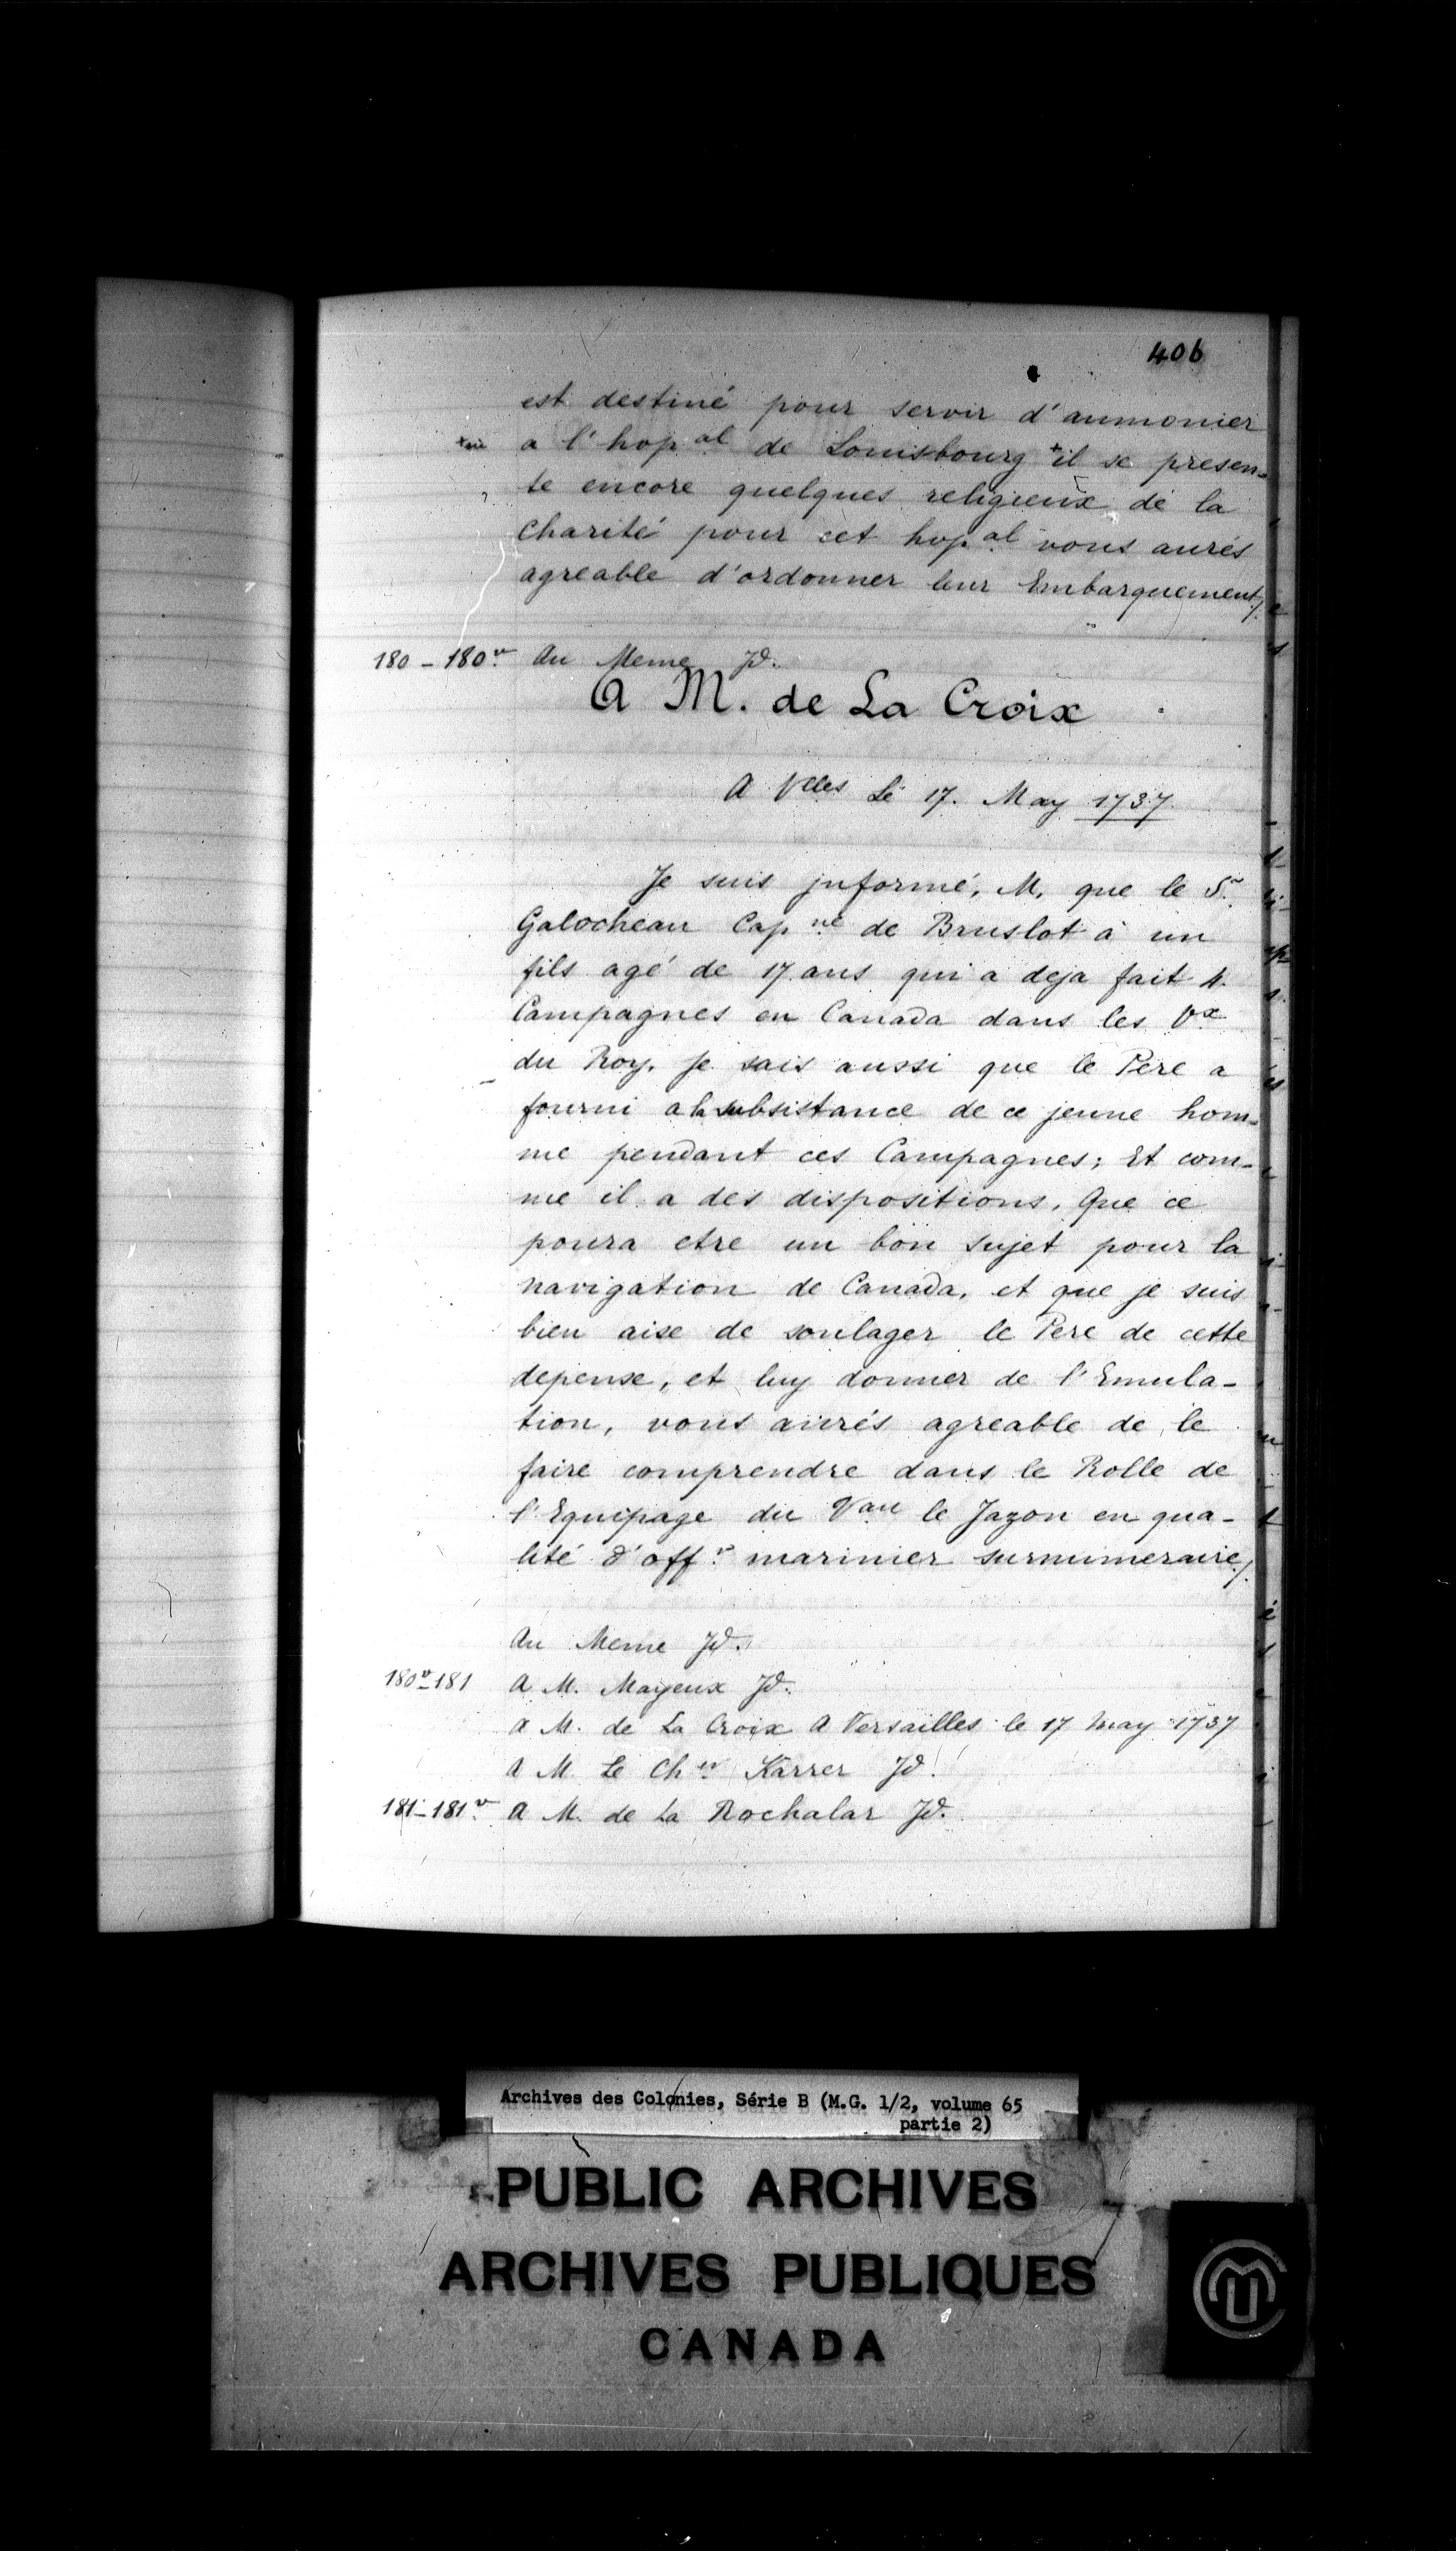 406
est destiné pour servir d'aumonier
a l'hop.al de Louisbourg + il se presen-
te encore quelques religieux de la
Charité pour cet hop.al vous aurés
agreable d'ordonner leur Embarquement/.
180 - 180.v Au Meme Jd.
A M. de La Croix
A Vlles Le 17. May 1737
Je suis jnformé, M, que le S.r
Galocheau Cap.ne de Bruslot à un
fils agé de 17 ans qui a deja fait 4.
Campagnes en Canada dans les V.x
du Roy. Je sais aussi que le Pere a
fourni a la subsistance de ce jeune hom-
me pendant ces Campagnes; Et com-
me il a des dispositions, Que ce
poura etre un bon sujet pour la
navigation de Canada, et que je suis
bien aise de soulager le Pere de cette
depense, et luy donner de l'Emula-
tion, vous aurés agreable de le
faire comprendre dans le Rolle de
l'Equipage du Vau le Jazon en qua-
lité d'off.r marinier surnumeraire/.
Au Meme Jd.
180v-181 A M. Mayeux Jd.
A M. de La Croix A Versailles le 17 May 1737
A M Le Ch.er Karrer Jd.
181-181.v A M. de La Rochalar Jd.
Archives des Colonies, Série B (M.G. 1/2, volume 65
partie 2)
PUBLIC ARCHIVES
ARCHIVES PUBLIQUES
CANADA